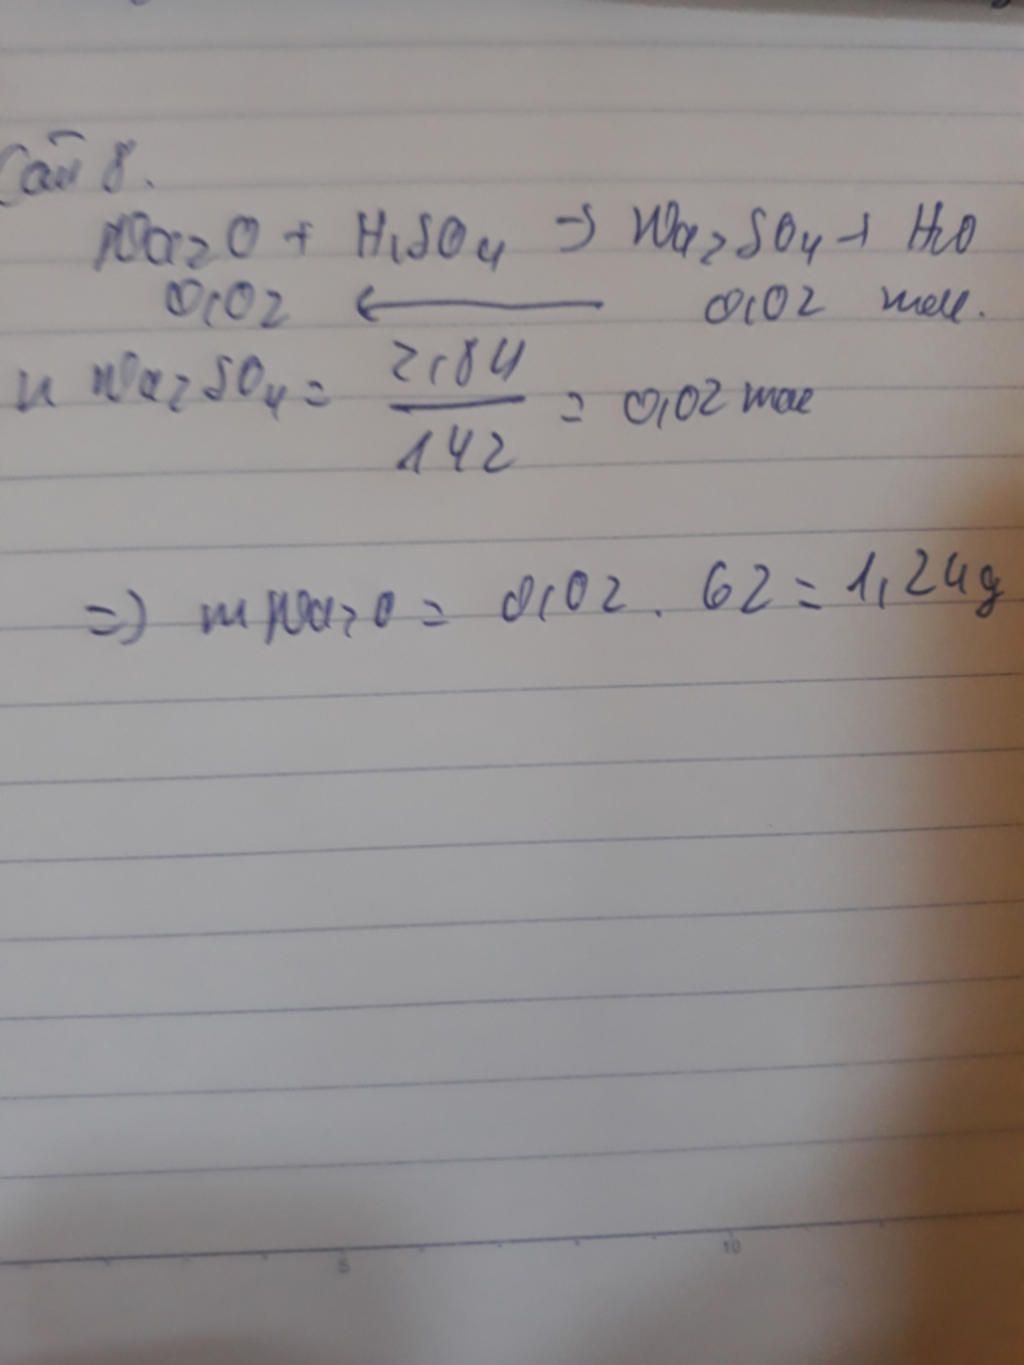 Câu 8.
Na2O + H2SO4 → Na2SO4 + H2O
0,02 ← 0,02 mol.
n Na2SO4 = 2,84 / 142 = 0,02 mol
=> m Na2O = 0,02 . 62 = 1,24g
5 10